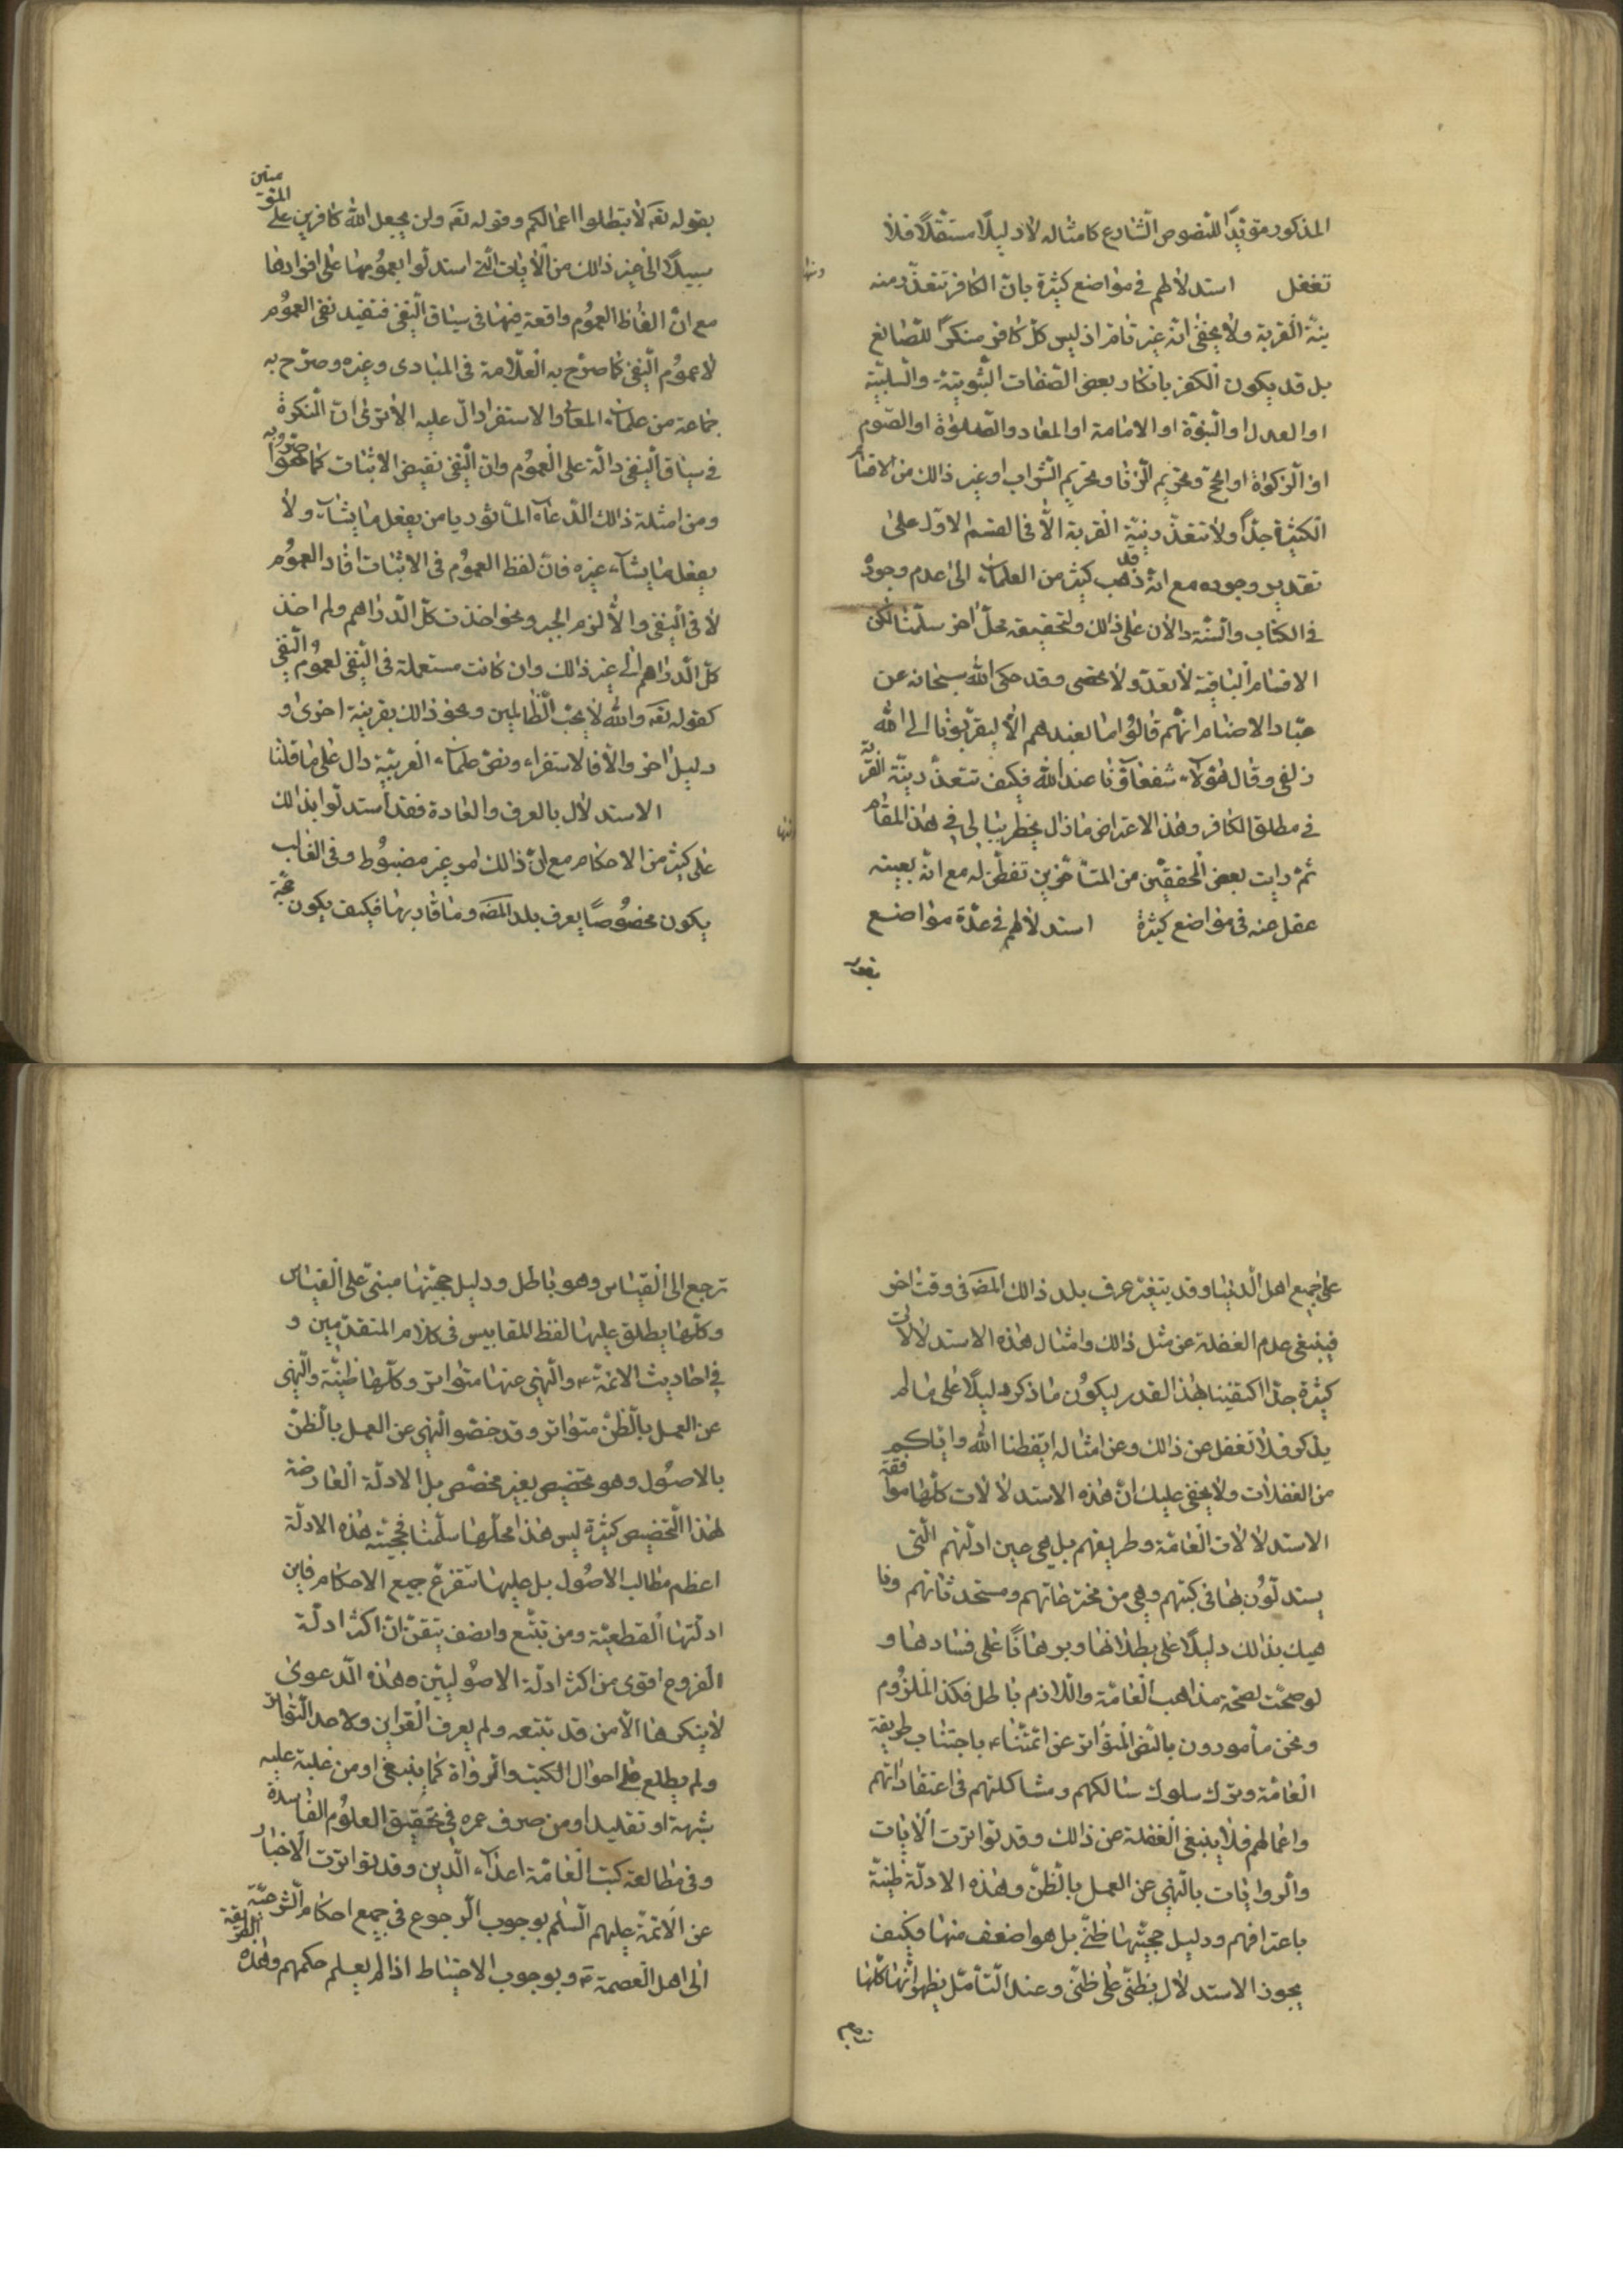 المذكور مؤيّدًا للنّصوص الشّارع كامثاله لا دليلًا مستقلًّا فلا
تغفل استدلالهم فى مواضع كثيرة بانّ الكافر تتعذّر منه
نيّة القربة ولا يخفى انّه غير تامّ اذ ليس كلّ كافر منكرًا للصّانع
بل قد يكون الكفر بانكار بعض الصّفات الثّبوتيّة والسلبيّة
او العدل او النّبوّة او الامامة او المعاد والصّلوة او الصّوم
او الزّكوة او الحجّ وتحريم الزّنا وتحريم الشّراب او غير ذالك من الاقسام
الكثيرة جدًّا ولا تتعذّر نيّة القربة الّا فى القسم الاوّل على
تقدير وجوده مع انّه قد ذهب كثير من العلماء الى عدم وجوده
فى الكتاب والسّنّة دالّان على ذالك ولتحقيقه محلّ اخر سلّمنا لكن
الاقسام الباقية لا تعدّ ولا تحصى وقد حكى الله سبحانه عن
عبّاد الاصنام انّهم قالوا ما نعبدهم الّا ليقرّبونا الى الله
زلفى وقال هؤلاء شفعاؤنا عند الله فكيف تتعذّر نيّة القربة
فى مطلق الكافر وهذا الاعتراض ما زال يخطر ببالى فى هذا المقام
ثمّ رايت بعض المحققين من المتأخّرين تفطّن له مع انّه بعينه
غفل عنه فى مواضع كثيرة استدلالهم فى عدّة مواضع
بقوله
بقوله تعه لا تبطلوا اعمالكم وقوله تعه ولن يجعل الله كافرين على المؤمنين
سبيلًا الى غير ذالك من الأيات الّتى استدلّوا بعمومها على افرادها
مع انّ الفاظ العموم واقعة فيها فى سياق النّفى فتفيد نفى العموم
لا عموم النّفى كما صرّح به العلّامة فى المبادى وغيره وصرّح به
جماعة من علماء المعانى والاستقراء دالّ عليه الا ترى انّ النّكرة
فى سياق النّفى دالّة على العموم وانّ النّفى نقيض الاثبات كما صرّحوا به
ومن امثلة ذالك الدّعاء المأثور يا من يفعل ما يشاء ولا
يفعل ما يشاء غيره فانّ لفظ العموم فى الاثبات افاد العموم
لا فى النّفى والّا لزم الجبر ونحو اخذت كلّ الدّراهم ولم اخذ
كلّ الدّراهم الى غير ذالك وان كانت مستعملة فى النّفى لعموم النّفى
كقوله تعه والله لا يحبّ الظّالمين ونحو ذالك بقرينة اخرى و
دليل اخر والّا فالاستقراء ونصّ علماء العربيّة دال على ما قلنا
الاستدلال بالعرف والعادة فقد استدلّوا بذالك
على كثير من الاحكام مع انّ ذالك امر غير مضبوط وفى الغالب
يكون مخصوصًا بعرف بلد المصه وما قاربها فكيف يكون حجّة
على جميع اهل الدّنيا وقد يتغيّر عرف بلد ذالك المصه فى وقت اخر
فينبغى عدم الغفلة عن مثل ذالك وامثال هذه الاستدلالات
كثيرة جدًّا اكتفينا بهذا القدر ليكون ما ذكر دليلًا على ما لم
يذكر فلا تغفل عن ذالك وعن امثاله ايقظنا الله وايّاكم
من الغفلات ولا يخفى عليك انّ هذه الاستدلالات كلّها موافقة
الاستدلالات العامّة وطريقهم بل هى عين ادلّتهم الّتى
يستدلّون بها فى كتبهم وهى من مخترعاتهم ومستحدثاتهم ونا
هيك بذالك دليلًا على بطلانها وبرهانًا على فسادها و
لو صحّت لصحّة مذاهب العامّة واللّازم باطل فكذا الملزوم
ونحن مأمورون بالنّص المتواتر عن ائمّتناء باجتناب طريقة
العامّة وترك سلوك سالكهم ومشاكلتهم فى اعتقاداتهم
واعمالهم فلا ينبغى الغفلة عن ذالك وقد تواترت الأيات
والرّوايات بالنّهى عن العمل بالظّنّ وهذه الادلّة ظنيّة
باعترافهم ودليل حجيّتها ظنّىّ بل هو اضعف منها فكيف
يجوز الاستدلال بظنّىّ على ظنّىّ وعند التّأمّل يظهر انّها كلّها
ترجع
ترجع الى القياس وهو باطل ودليل حجيّتها مبنىّ على القياس
وكلّها يطلق عليها لفظ المقاييس فى كلام المتقدّمين و
فى احاديث الائمّةء والنّهى عنها متواتر وكلّها ظنيّة والنّهى
عن العمل بالظّنّ متواتر وقد خصّو النّهى عن العمل بالظنّ
بالاصول وهو تخصيص بغير مخصّص بل الادلّة العارضة
لهذا التّخصيص كثيرة ليس هذا محلّها سلّمنا فحجيّة هذه الادلّة
اعظم مطالب الاصول بل عليها تتفرّع جميع الاحكام فاين
ادلّتها القطعيّة ومن تتبّع وانصف تيقّن انّ اكثر ادلّة
الفروع اقوى من اكثر ادلّة الاصوليّين وهذه الدّعوى
لا ينكرها الّا من قد تتبعه ولم يعرف القراين ولا حد التّواتر
ولم يطلع على احوال الكتب والرّواة كما ينبغى او من غلبة عليه
شبهة او تقليد او من صرف عمره فى تحقيق العلوم الفاسدة
وفى مطالعة كتب العامّة اعداء الدّين وقد تواترت الاخبار
عن الائمّة عليهم السّلم بوجوب الرّجوع فى جميع احكام الشّرعيّة
الى اهل العصمةء وبوجوب الاحتياط اذا لم يعلم حكمهم وهذه الطّريقة